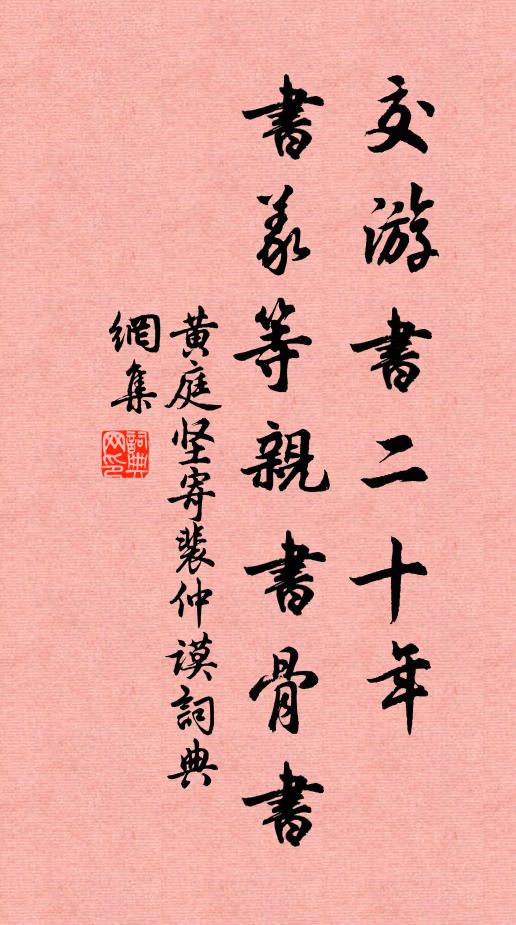 交游書二十年
書義等親書骨書
黄庭坚寄裴仲謨詞典
網集
詞典
网印